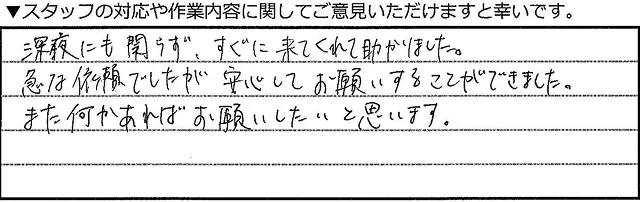 ▼スタッフの対応や作業内容に関してご意見いただけますと幸いです。
深夜にも関らず、すぐに来てくれて助かりました。
急な依頼でしたが安心してお願いすることができました。
また何かあればお願いしたいと思います。